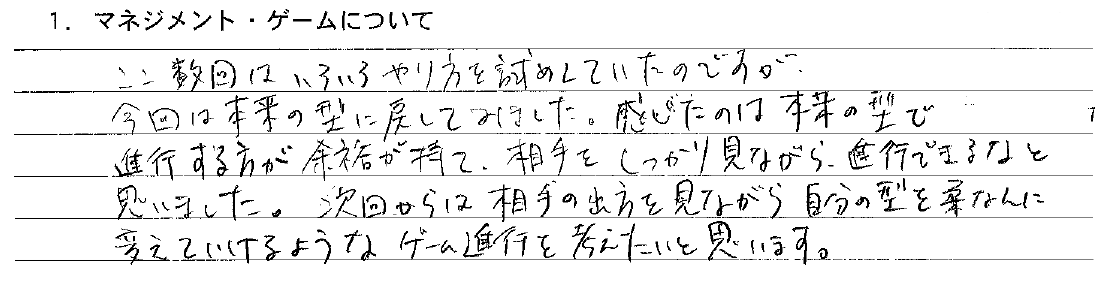 1. マネジメント・ゲームについて
ここ数回はいろいろやり方を試めしていたのですが、
今回は本来の型に戻してみました。感じたのは本来の型で
進行する方が余裕が持て、相手をしっかり見ながら、進行できるなと
思いました。次回からは相手の出方を見ながら自分の型を柔なんに
変えていけるようなゲーム進行を考えたいと思います。